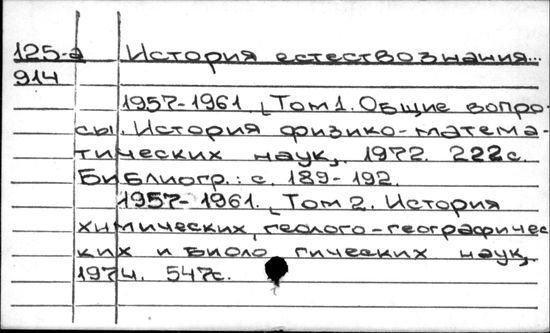 125-а История естествознания...
914
1957-1961. Том 1. Общие вопро-
сы. История физико-матема-
тических наук, 1972. 222с.
Библиогр.: с. 189-192.
1957-1961. Том 2. История
химических, геолого-географичес
ких и биоло гических наук,
1974. 547с.